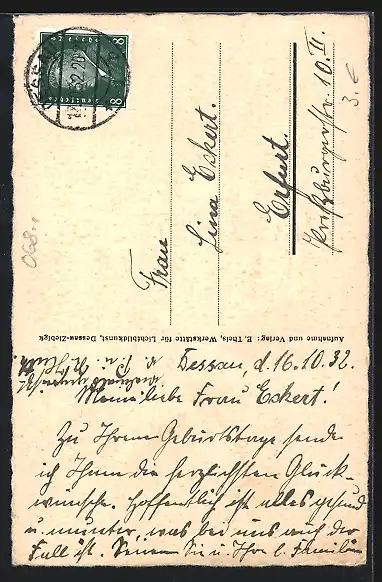 Dessau, d. 16.10.32.
Meine liebe Frau Eckert!
Zu Ihrem Geburtstage sende
ich Ihnen die herzlichsten Glück-
wünsche. Hoffentlich ist alles gesund
u. munter, was bei uns auch der
Fall ist. Seien Sie u. Ihre l. Familie
Aufnahme und Verlag: E. Theis, Werkstätte für Lichtbildkunst, Dessau-Ziebigk
Frau
Lina Eckert.
Erfurt.
str. 10 II.
3.€
068..
8 8
Deutsches Reich